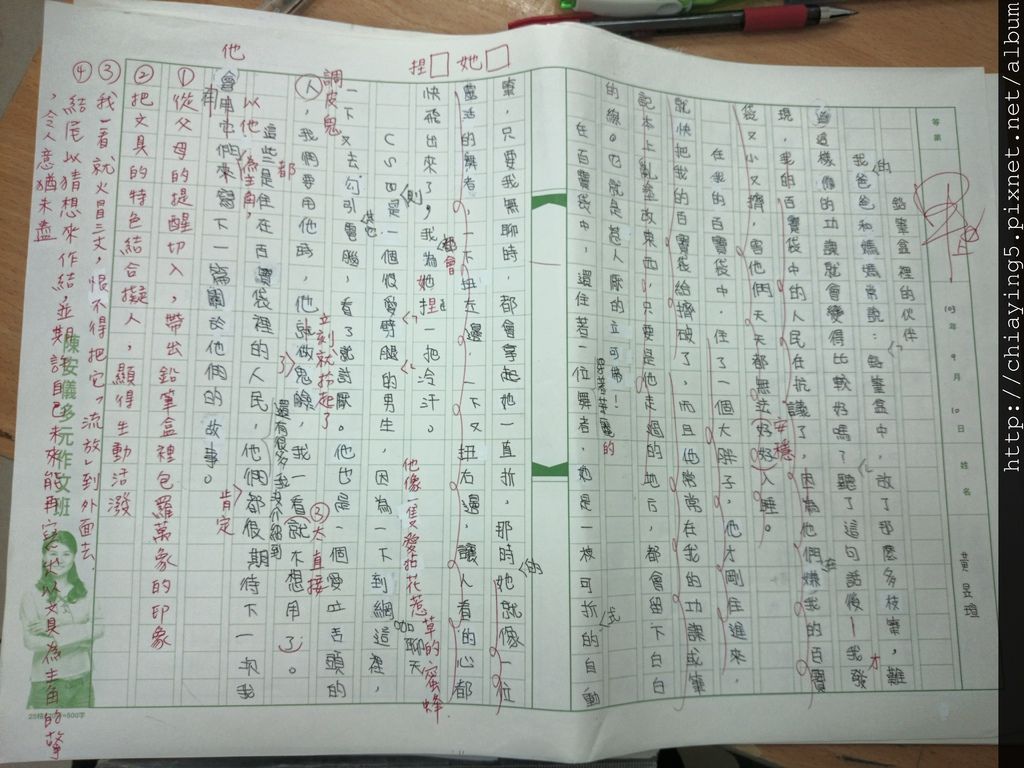 鉛筆盒裡的伙伴
我爸爸和媽媽常說：鉛筆盒中，放了那麼多枝筆，難
道這樣你的功課就會變得比較好嗎？聽了這句話後－我發
現，我的百寶袋中的人民在抗議了，因為他們嫌我的百寶
袋又小又擠，害他們天天都無法好好入睡。
在我的百寶袋中，住了一個大胖子，他才剛住進來，
就快把我的百寶袋給擠破了，而且他常常在我的功課或筆
記本上亂塗改東西，只要是他走過的地方，都會留下白白
的線。他就是甚人厭的立可帶！
在百寶袋中，還住著一位舞者，她是一枝可折的自動
筆，只要我無聊時，都會拿起她一直折，那時她就像一位
靈活的舞者，一下扭左邊，一下又扭右邊，讓人看的心都
快飛出來了，我為她捏一把冷汗。
USB是一個很愛劈腿的男生，因為一下到網這裡，
一下又去勾引電腦，看了就討厭。他也是一個愛吐舌頭的
人，我們要用他時，他就做鬼臉，我一看就不想用了。
這些是住在百寶袋裡的人民，他們都很期待下一次我
會串他們來寫下一篇關於他們的故事。
等第
103年9月10日
姓名
黃昱瑄
的
才
在
安穩
式
的
她
捏
都會
則
他像一隻愛拈花惹草的蜜蜂
聊天
調皮鬼
立刻就抓起了
③太直接
都
還有很多我沒介紹到
以他為主角，
肯定
他
①從父母的提醒切入，帶出鉛筆盒裡包羅萬象的印象
②把文具的特色結合擬人，顯得生動活潑
③我一看就火冒三丈，恨不得把它「流放」到外面去。
④結尾以猜想來作結，並期許自己未來能再寫以文具為主角的故事
，令人意猶未盡
陳安儀多元作文班
http://chiaying5.pixnet.net/album